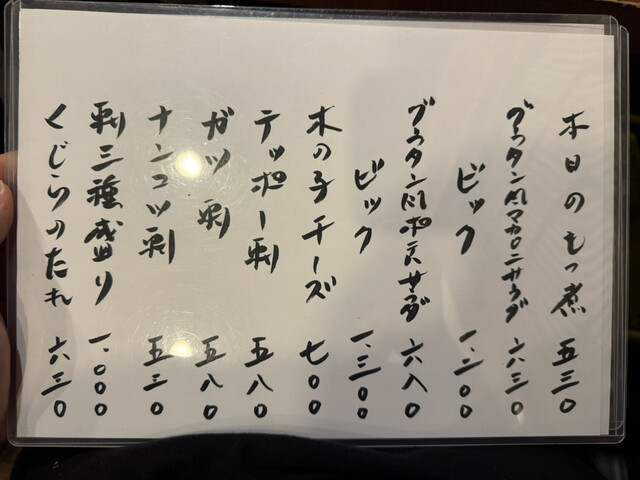 本日のもつ煮 五三〇
グラタン風マカロニサラダ 六三〇
ビック 一、二〇〇
グラタン風ポテトサラダ 六八〇
ビック 一、三〇〇
木の子チーズ 七〇〇
テッポー刺 五八〇
ガツ刺 五八〇
ナンコツ刺 五三〇
刺三種盛り 一、〇〇〇
くじらのたれ 六三〇